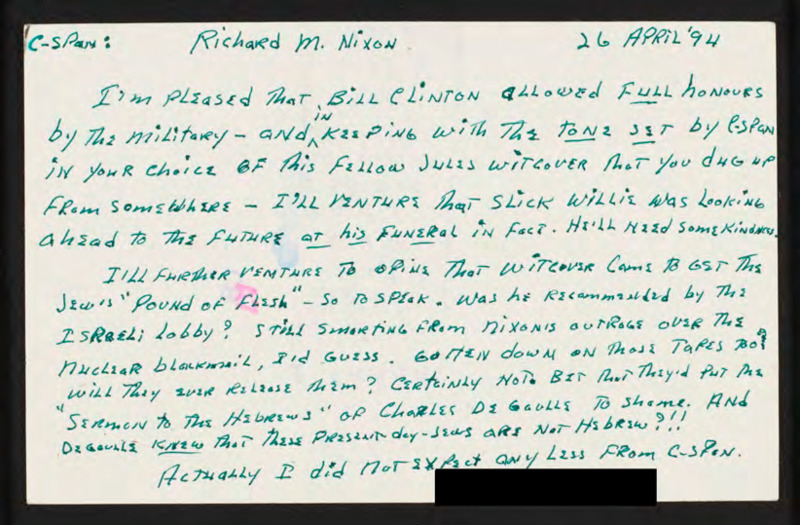 C-SPAN: Richard M. Nixon 26 APRIL '94
I'm pleased that Bill Clinton allowed full honours
by the military – and, in keeping with the tone set by C-SPAN
in your choice of this fellow Jules Witcover that you dug up
from somewhere – I'll venture that Slick Willie was looking
ahead to the future at his funeral in fact. He'll need some kindness.
I'll further venture to opine that Witcover came to get the
Jew's "pound of flesh" – so to speak. Was he recommended by the
Israeli lobby? Still smarting from Nixon's outrage over the
nuclear blackmail, I'd guess. Gotten down on those tapes too?
Will they ever release them? Certainly not. Bet that they'd put the
"Sermon to the Hebrews" of Charles De Gaulle to shame. And
DeGaulle knew that these present-day-Jews are not Hebrew?!!
Actually I did not expect any less from C-SPAN.